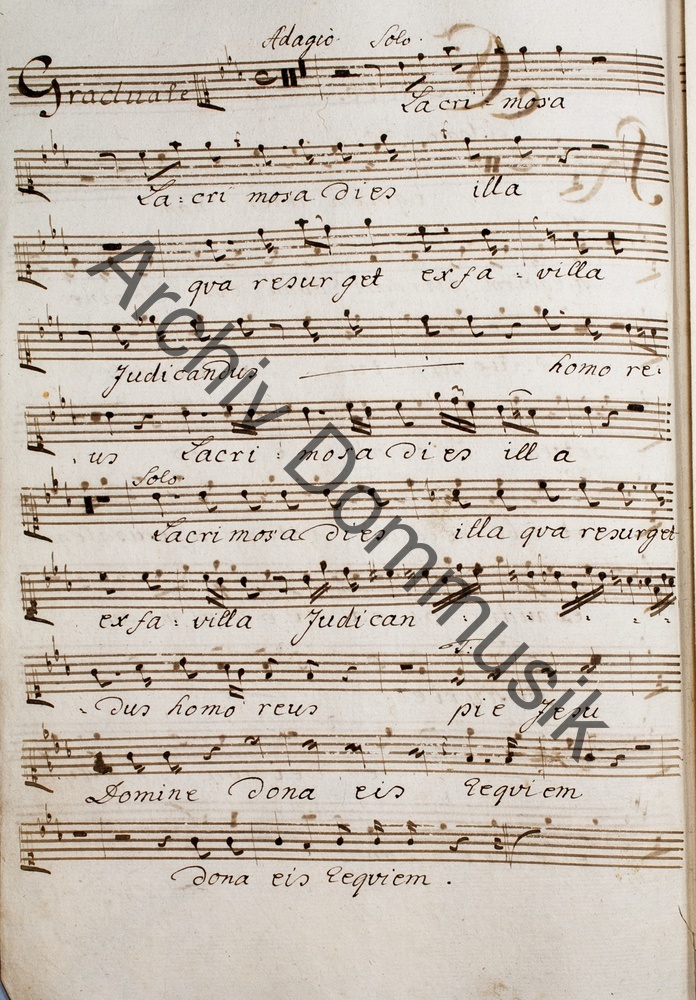 Adagio Solo.
Graduale
Lacri - mosa
La: cri mosa dies illa
qva resur get exfa : villa
Judicandus homo re:
us Lacri : mosa di es ill a
Solo
Lacri mosa dies illa qva resurget
exfa : villa Judican
dus homo reus pie Jesu
Domine dona eis Reqviem
dona eis Reqviem .
Archiv Dommusik